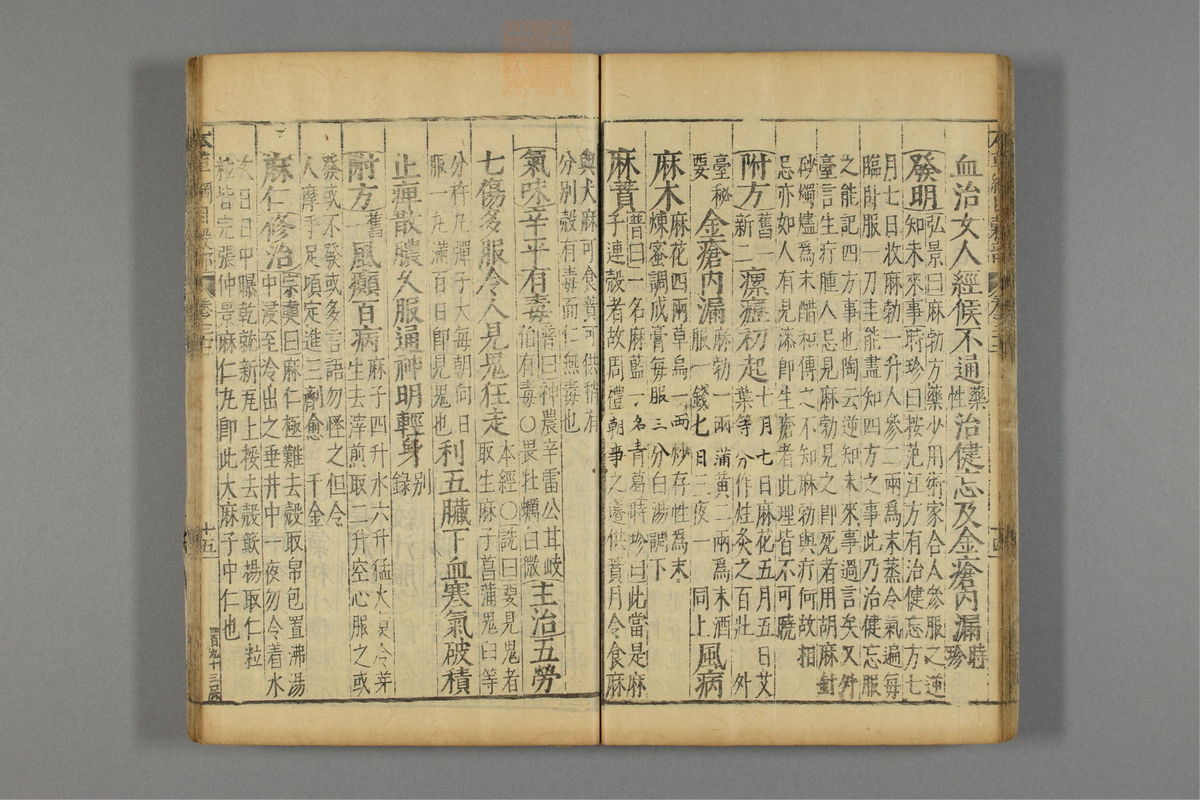 血治女人經候不通藥性治健忘及金瘡內漏時珍
發明弘景曰麻勃方藥少用術家合人參服之逆
知未來事時珍曰按范汪方有治健忘方七
月七日收麻勃一升人參二兩爲末蒸令氣遍每
臨臥服一刀圭能盡知四方之事此乃治健忘服
之能記四方事也陶云逆知未來事過言矣又外
臺言生疔腫人忌見麻勃見之卽死者用胡麻針
砂燭燼爲末醋和傅之不知麻勃與疔何故相
忌亦如人有見漆卽生瘡者此理皆不可曉
附方舊一新二瘰癧初起七月七日麻花五月五日艾
葉等分作炷灸之百壯外
臺秘要金瘡內漏麻勃一兩蒲黃二兩爲末酒
服一錢七日三夜一同上風病
麻木麻花四兩草烏一兩炒存性爲末
煉蜜調成膏每服三分白湯調下
麻蕡普曰一名麻藍一名青葛時珍曰此當是麻
子連殼者故周禮朝事之籩供蕡月令食麻
與犬麻可食蕡可供稍有
分別殼有毒而仁無毒也
氣味辛平有毒普曰神農辛雷公甘岐
伯有毒○畏牡蠣白微主治五勞
七傷多服令人見鬼狂走本經○詵曰要見鬼者
取生麻子菖蒲鬼臼等
分杵丸彈子大每朝向日
服一丸滿百日卽見鬼也利五臟下血寒氣破積
止痺散膿久服通神明輕身別錄
附方舊一風癲百病麻子四升水六升猛火煑令芽
生去滓煎取二升空心服之或
發或不發或多言語勿怪之但令
人摩手足頃定進三劑愈千金
麻仁修治宗奭曰麻仁極難去殼取帛包置沸湯
中浸至冷出之垂井中一夜勿令着水
次日日中曝乾就新瓦上挼去殼簸揚取仁粒
粒皆完張仲景麻仁丸卽此大麻子中仁也